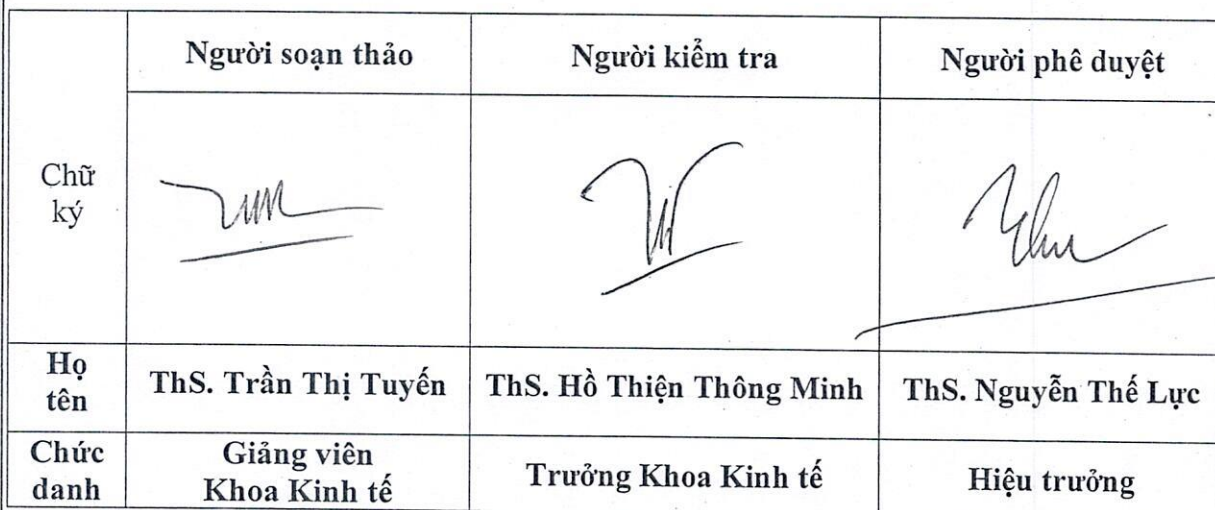 Người soạn thảo Người kiểm tra Người phê duyệt
Chữ
ký
Họ
tên
ThS. Trần Thị Tuyến ThS. Hồ Thiện Thông Minh ThS. Nguyễn Thế Lực
Chức
danh
Giảng viên
Khoa Kinh tế
Trưởng Khoa Kinh tế Hiệu trưởng